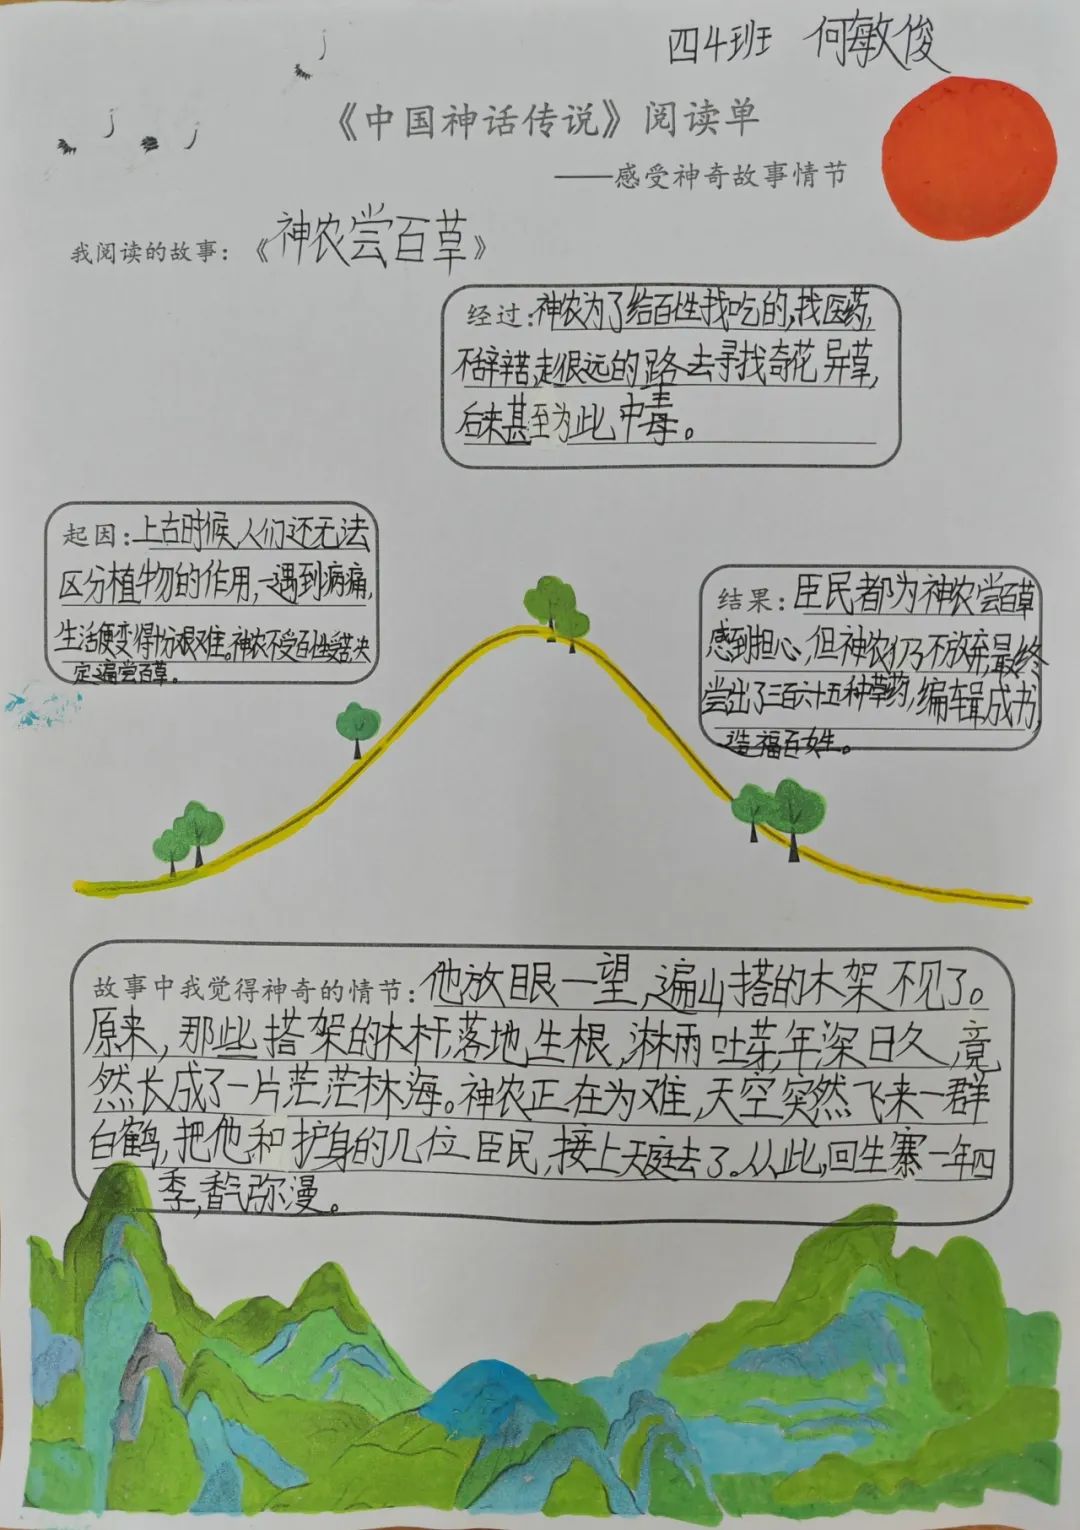 四4班 何敏俊
《中国神话传说》阅读单
——感受神奇故事情节
我阅读的故事：《神农尝百草》
经过：神农为了给百姓找吃的，找医药，
不辞辛苦，走很远的路去寻找奇花异草，
后来甚至为此中毒。
起因：上古时候，人们还无法
区分植物的作用，一遇到病痛，
生活便变得十分艰难。神农不忍百姓受苦，决
定遍尝百草。
结果：臣民都为神农尝百草
感到担心，但神农仍不放弃，最终
尝出了三百六十五种草药，编辑成书，
造福百姓。
故事中我觉得神奇的情节：他放眼一望，遍山搭的木架不见了。
原来，那些搭架的木杆，落地生根，淋雨吐芽，年深日久，竟
然长成了一片茫茫林海。神农正在为难，天空突然飞来一群
白鹤，把他和护身的几位臣民，接上天庭去了。从此，回生寨一年四
季，香气弥漫。